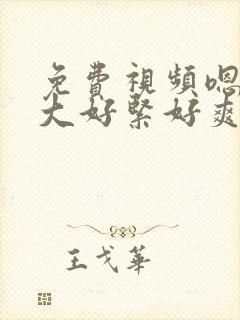 免費視頻嗯
大好緊好爽
王戈華